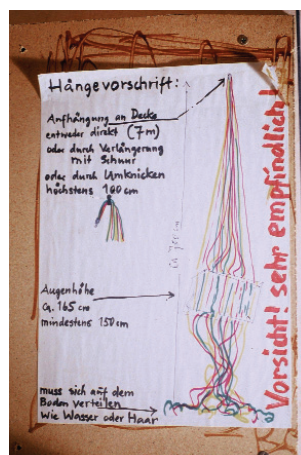 Hängevorschrift:
Anfhängung an Decke
entweder direkt (7m)
oder durch Verlängerung
mit Schnur
oder durch Umknicken
höchstens 100 cm
ca. 700 cm
Augenhöhe
ca. 165 cm
mindestens 150 cm
muss sich auf dem
Boden verteilen
Wie Wasser oder Haar
Vorsicht! sehr empfindlich!